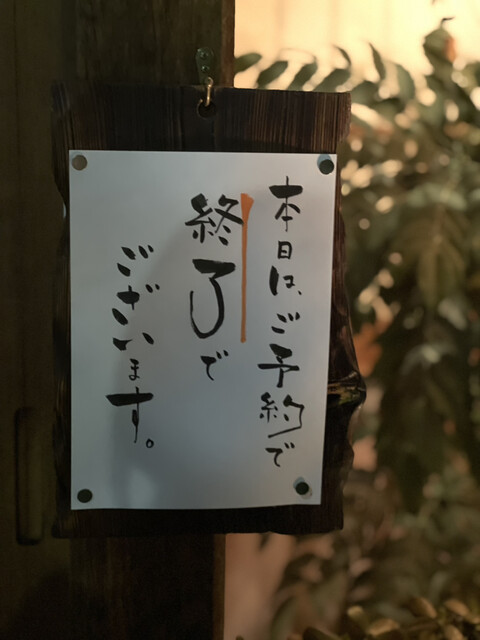 本日は、ご予約で
終了で
ございます。